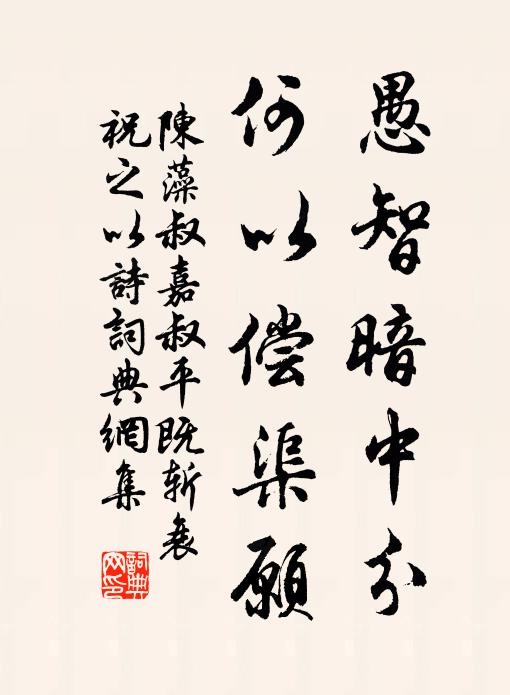 愚智暗中分
何以偿渠願
陳藻叔嘉叔平既斬衰
祝之以詩詞典網集
詞典网印